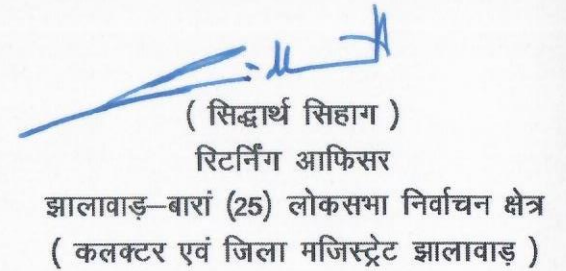 ( सिद्धार्थ सिहाग )
रिटर्निंग आफिसर
झालावाड़–बारां (25) लोकसभा निर्वाचन क्षेत्र
( कलक्टर एवं जिला मजिस्ट्रेट झालावाड़ )